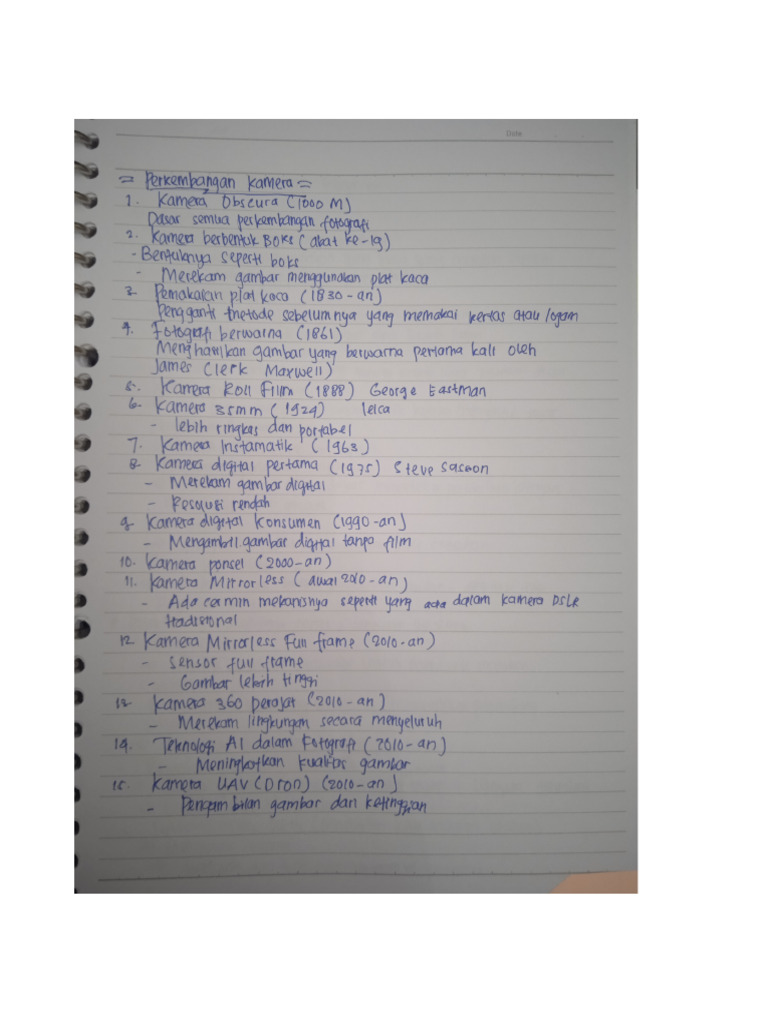 Date
= Perkembangan Kamera =
1. Kamera Obscura (1000 M)
Dasar semua perkembangan fotografi
2. Kamera berbentuk Boks (abat ke-19)
- Bentuknya seperti boks
- Merekam gambar menggunakan plat kaca
3. Pemakaian plat kaca (1830-an)
Pengganti metode sebelumnya yang memakai kertas atau logam
4. Fotografi berwarna (1861)
Menghasilkan gambar yang berwarna pertama kali oleh
James Clerk Maxwell)
5. Kamera Roll Film (1888) George Eastman
6. Kamera 35mm (1924) leica
- lebih ringkas dan portabel
7. Kamera Instamatik (1963)
8. Kamera digital pertama (1975) Steve Sasson
- Merekam gambar digital
- Resolusi rendah
9. Kamera digital Konsumen (1990-an)
- Mengambil gambar digital tanpa film
10. Kamera ponsel (2000-an)
11. Kamera Mirrorless (awal 2010-an)
- Ada cermin mekanisnya seperti yang ada dalam kamera DSLR
tradisional
12. Kamera Mirrorless Full frame (2010-an)
- Sensor full frame
- Gambar lebih tinggi
13. Kamera 360 derajat (2010-an)
- Merekam lingkungan secara menyeluruh
14. Teknologi AI dalam Fotografi (2010-an)
- Meningkatkan kualitas gambar
15. Kamera UAV (Dron) (2010-an)
- Pengambilan gambar dari ketinggian